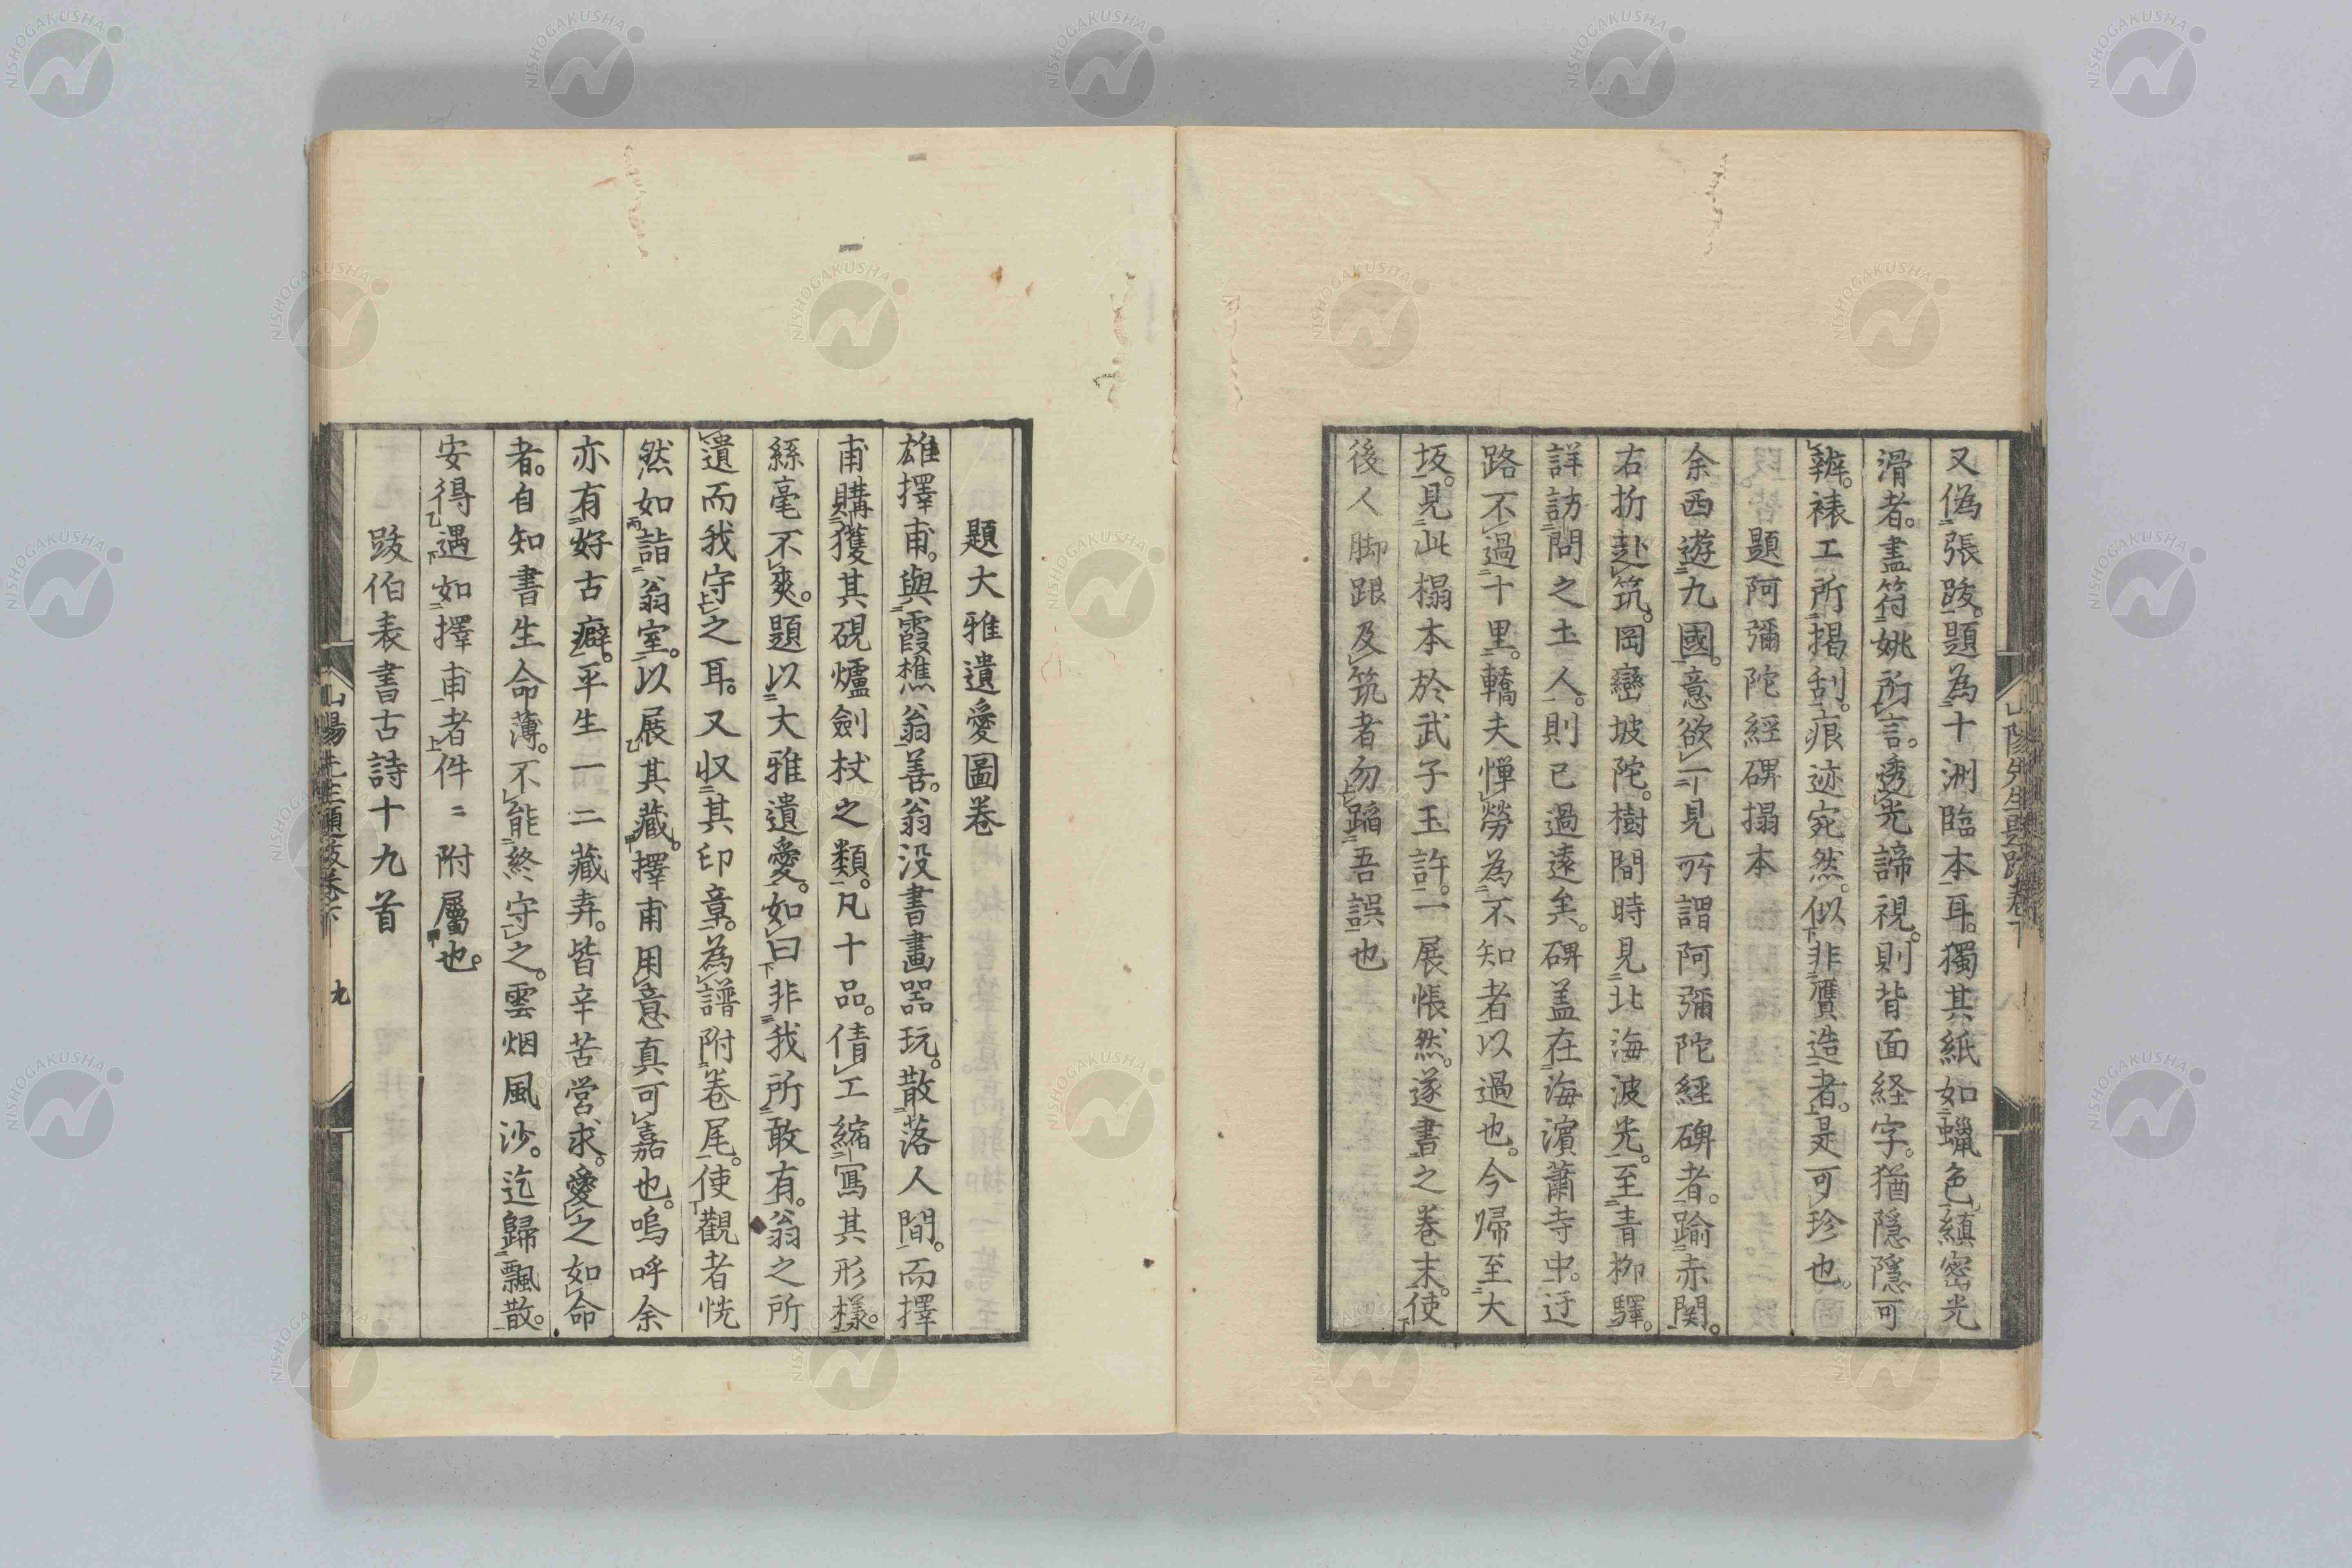 又偽張跋。題為十洲臨本耳。獨其紙如蠟色縝密光
滑者。盡符姚所言。透光諦視。則背面経字。猶隠隠可
辨。裱工所揭刮。痕迹宛然。似非贋造者。是可珍也。
題阿彌陀經碑搨本
余西遊九國。意欲一見所謂阿彌陀經碑者。踰赤関。
右折赴筑。岡巒坡陀。樹間時見北海波光。至青柳驛。
詳訪問之土人。則已過遠矣。碑盖在海濵蕭寺中。迂
路不過十里。轎夫憚勞為不知者以過也。今帰至大
坂。見此搨本於武子玉許。一展悵然。遂書之卷末。使
後人脚跟及筑者勿蹈吾誤也
題大雅遺愛圖卷
雄擇甫。與霞樵翁善。翁没書畫器玩。散落人間。而擇
甫購獲其硯爐劍杖之類。凡十品。倩工縮寫其形樣。
絲毫不爽。題以大雅遺愛。如曰非我所敢有。翁之所
遺而我守之耳。又収其印章。為譜附卷尾。使觀者恍
然如詣翁室。以展其藏。擇甫用意真可嘉也。嗚呼余
亦有好古癖。平生一二藏弆。皆辛苦営求。愛之如命
者。自知書生命薄。不能終守之。雲烟風沙。迄歸飄散。
安得遇如擇甫者件〻附屬也。
跋伯表書古詩十九首
山陽先生題跋卷下
九